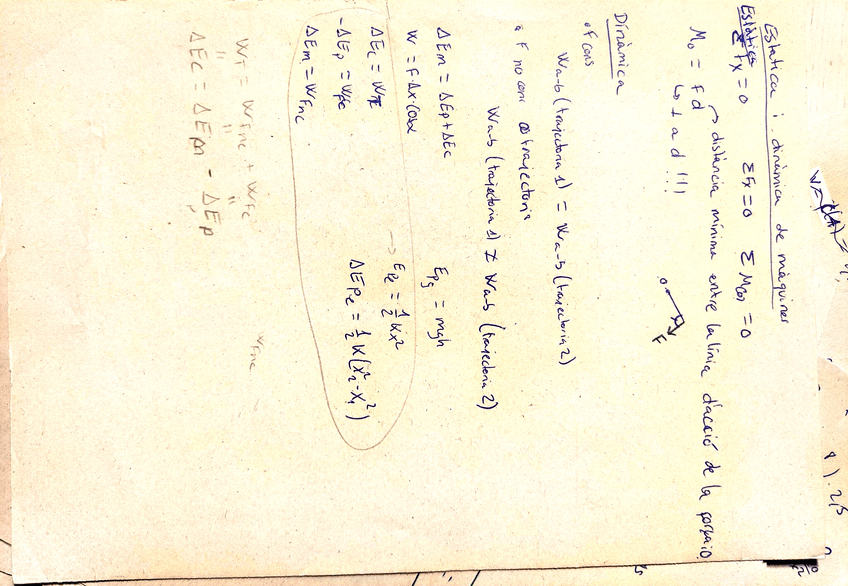 Estatica i dinàmica de màquines
Estàtica
ΣFx = 0 ΣFy = 0 ΣM(o) = 0
→ distància mínima entre la línia d'acció de la força i O
Mo = F d
↳ ⊥ a d !!!
O
F
Dinàmica
• F cons
Wa-b (trajectoria 1) = Wa-b (trajectoria 2)
• F no cons trajectoria
Wa-b (trajectoria 1) ≠ Wa-b (trajectoria 2)
ΔEm = ΔEp + ΔEc Epg = mgh
W = F·Δx·cosα → Epe = ½ Kx²
ΔEc = WT ΔEpe = ½ K(x₂² - x₁²)
-ΔEp = WFc
ΔEm = WFnc
WT = WFnc + WFc
" " "
ΔEc = ΔEm - ΔEp
WFnc